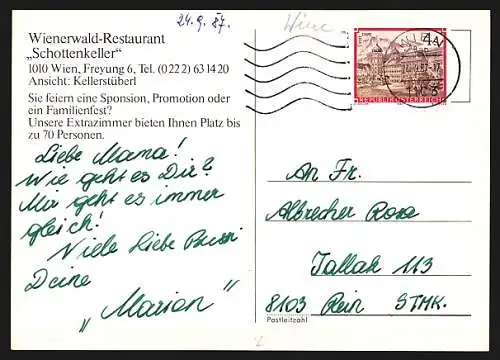 24.9.87.
Wien
Wienerwald-Restaurant
„Schottenkeller“
1010 Wien, Freyung 6, Tel. (0222) 63 14 20
Ansicht: Kellerstüberl
Sie feiern eine Sponsion, Promotion oder
ein Familienfest?
Unsere Extrazimmer bieten Ihnen Platz bis
zu 70 Personen.
Liebe Mama!
Wie geht es Dir?
Mir geht es immer
gleich!
Viele Liebe Bussi
Deine
„Marion“
4
REPUBLIK ÖSTERREICH
An Fr.
Albrecher Rosa
Tallak 113
8103 Rein STMK.
Postleitzahl